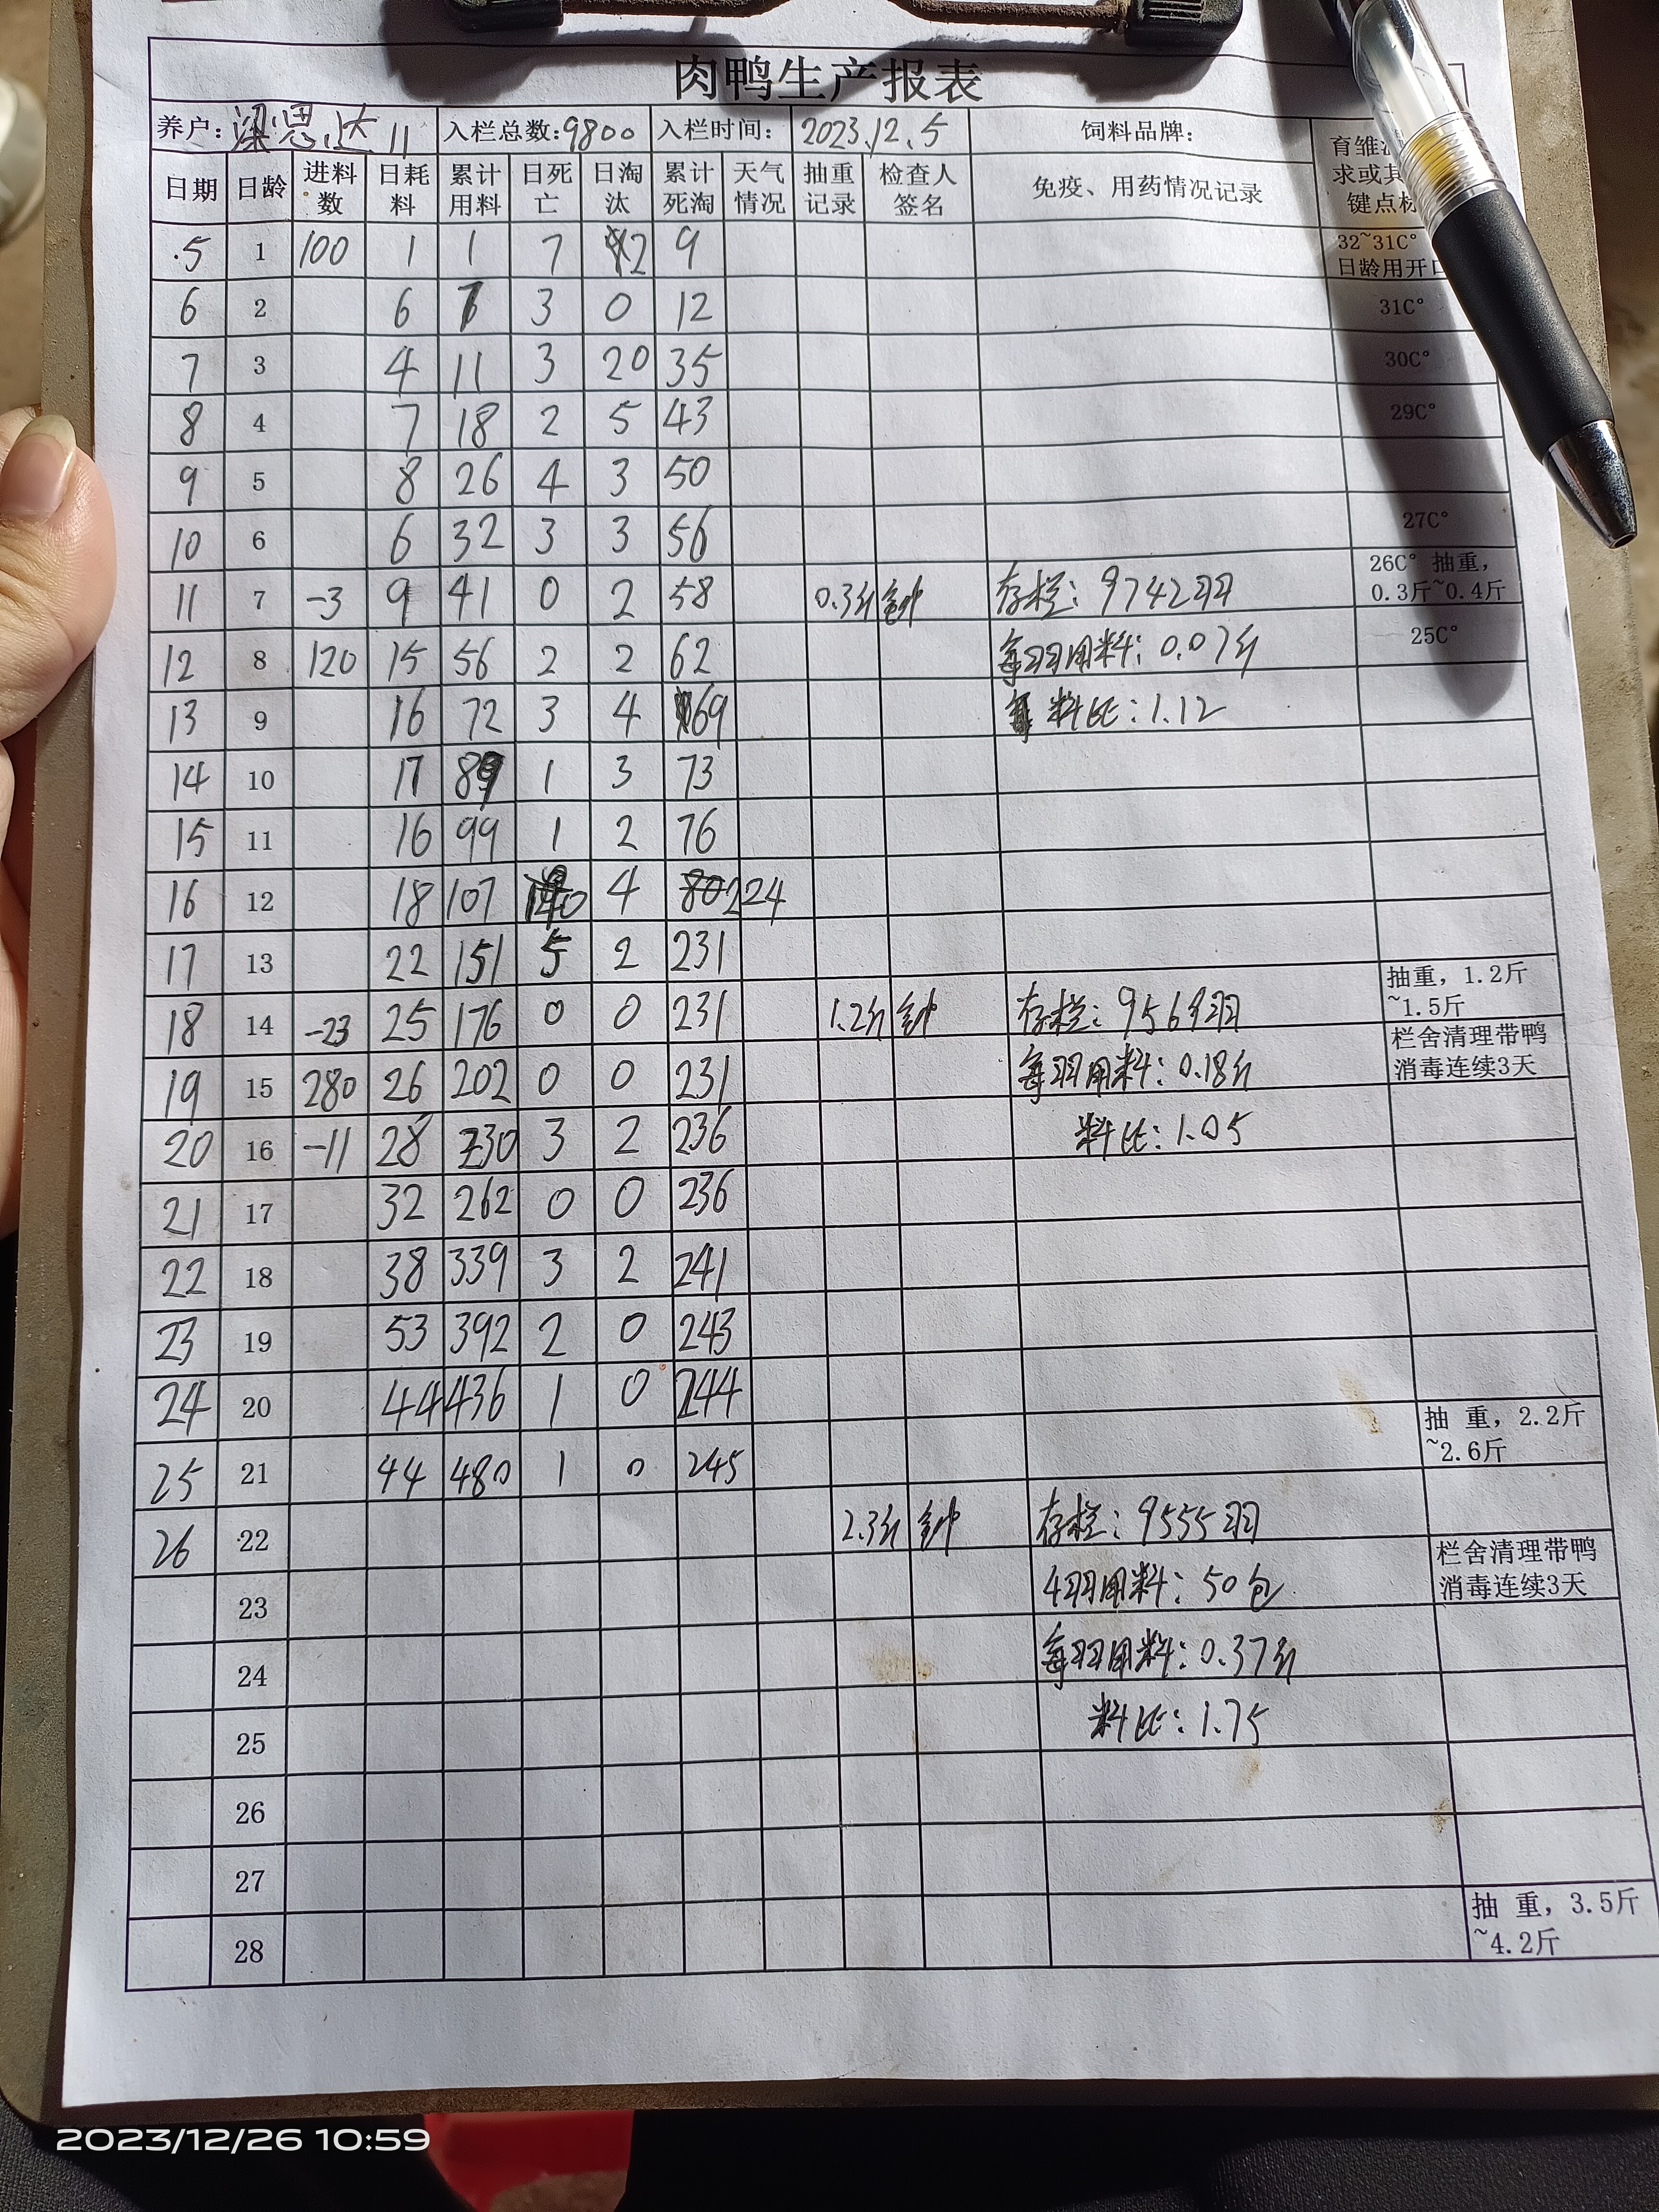 肉鸭生产报表
养户: 梁思达11 入栏总数:9800 入栏时间: 2023.12.5 饲料品牌:
日期 日龄 进料数 日耗料 累计用料 日死亡 日淘汰 累计死淘 天气情况 抽重记录 检查人签名 免疫、用药情况记录 育雏
求或其
键点标
5 1 100 1 1 7 2 9 32~31C° 日龄用开口
6 2 6 7 3 0 12 31C°
7 3 4 11 3 20 35 30C°
8 4 7 18 2 5 43 29C°
9 5 8 26 4 3 50
10 6 6 32 3 3 56 27C°
11 7 -3 9 41 0 2 58 0.3斤 钟 存栏: 9742羽 26C° 抽重, 0.3斤~0.4斤
12 8 120 15 56 2 2 62 每羽用料: 0.07斤 25C°
13 9 16 72 3 4 69 料比: 1.12
14 10 17 89 1 3 73
15 11 16 99 1 2 76
16 12 18 107 140 4 80 224
17 13 22 151 5 2 231
18 14 -23 25 176 0 0 231 1.2斤 钟 存栏: 9569羽 抽重, 1.2斤~1.5斤
19 15 280 26 202 0 0 231 每羽用料: 0.18斤 栏舍清理带鸭消毒连续3天
20 16 -11 28 230 3 2 236 料比: 1.05
21 17 32 262 0 0 236
22 18 38 339 3 2 241
23 19 53 392 2 0 243
24 20 44 436 1 0 244 抽 重, 2.2斤~2.6斤
25 21 44 480 1 0 245
26 22 2.3斤 钟 存栏: 9555羽 栏舍清理带鸭消毒连续3天
23 4羽用料: 50包
24 每羽用料: 0.37斤
25 料比: 1.75
26
27
28 抽 重, 3.5斤~4.2斤
2023/12/26 10:59